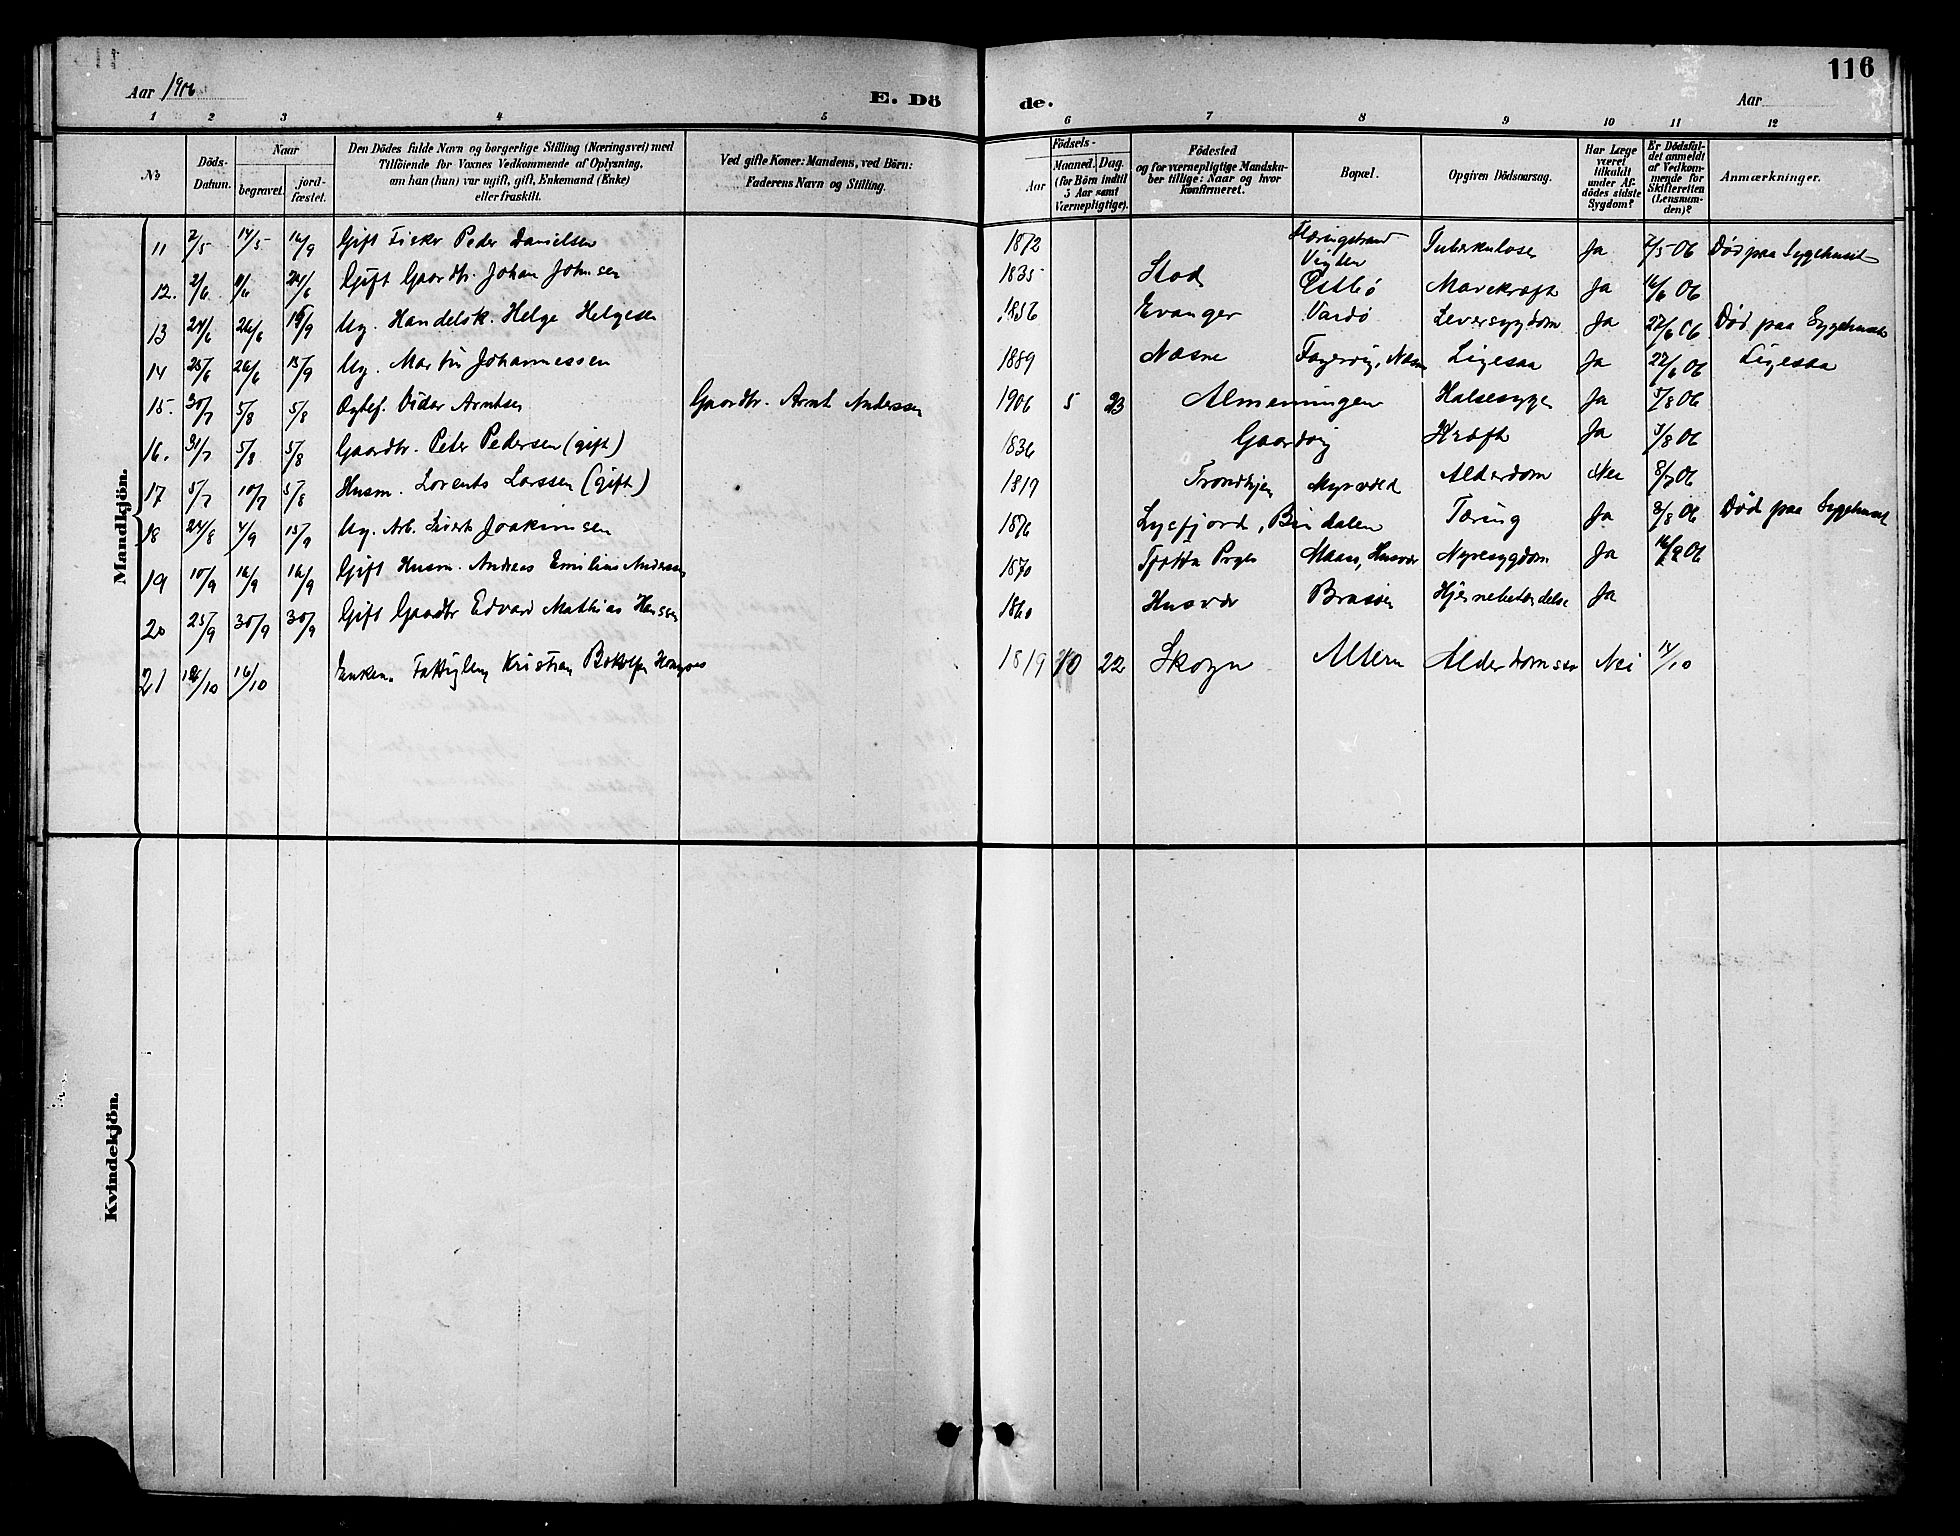 116
Aar 1906
E. Dö
de.
Aar
1 2 3 4 5 6 7 8 9 10 11 12
No
Döds-Datum.
Naar
begravet.
jord-fæstet.
Den Dödes fulde Navn og borgerlige Stilling (Næringsvei) med
Tilföiende for Voxnes Vedkommende af Oplysning,
om han (hun) var ugift, gift, Enkemand (Enke)
eller fraskilt.
Ved gifte Koner: Mandens, ved Börn:
Faderens Navn og Stilling.
Födsels-
Aar
Maaned. Dag.
(for Börn indtil
5 Aar samt
Værnepligtige).
Födested
og for værnepligtige Mandska-
ber tillige: Naar og hvor
konfirmeret.
Bopæl.
Opgiven Dödsaarsag.
Har Læge
været
tilkaldt
under Af-
dödes sidste
Sygdom?
Er Dödsfal-
det anmeldt
af Vedkom-
mende for
Skifteretten
(Lensman-
den)?
Anmærkninger.
Mandkjön.
11 2/5 14/5 16/9 Gift Fisker Peder Danielsen 1872 Vigten Tuberkulose Ja 7/5 06 Død paa Sygehuset
12. 2/6 9/6 24/6 Gift Gaardbr. Johan Johnsen 1835 Stod Østbø Mavekræft Ja 16/6 06
13 24/6 26/6 16/9 Ug. Handelsk. Helge Helgesen 1856 Evanger Vardø Leversygdom Ja 27/6 06 Død paa Sygehuset
14 25/6 26/6 13/9 Ug. Martin Johannessen 1889 Næsne Fagervig, Næsne Ligesaa Ja 27/6 06 Ligesaa
15. 30/7 5/8 5/8 Ægtef. Vidar Arntsen Gaardbr. Arnt Anderssen 1906 5 23 Almenningen Halsesyge Ja 5/8 06
16. 31/7 5/8 5/8 Gaardbr. Peter Pedersen (gift) 1836 Gaardvig Kræft Ja 5/8 06
17 5/7 10/7 5/8 Husm. Lorents Larssen (gift) 1819 Trondhjem Alderdom Nei 8/7 06
18 24/8 4/9 13/9 Ug. Arb. Sivert Joakimsen 1876 Lysfjord, Bindalen Tæring Ja 3/8 06 Død paa Sygehuset
19 10/9 16/9 16/9 Gift Husm. Andreas Emilius Andersen 1870 Tjøtta Prgld Husvær Nyresygdom Ja 16/9 06
20 25/9 30/9 30/9 Gift Gaardbr Edvard Mathias Hansen 1860 Husvær Brasøen Hjernebetændelse Ja
21 16/10 Enkem. Fattiglem Kristian 1819 10 22 Skogn Altern Nei 14/10
Kvindekjön.